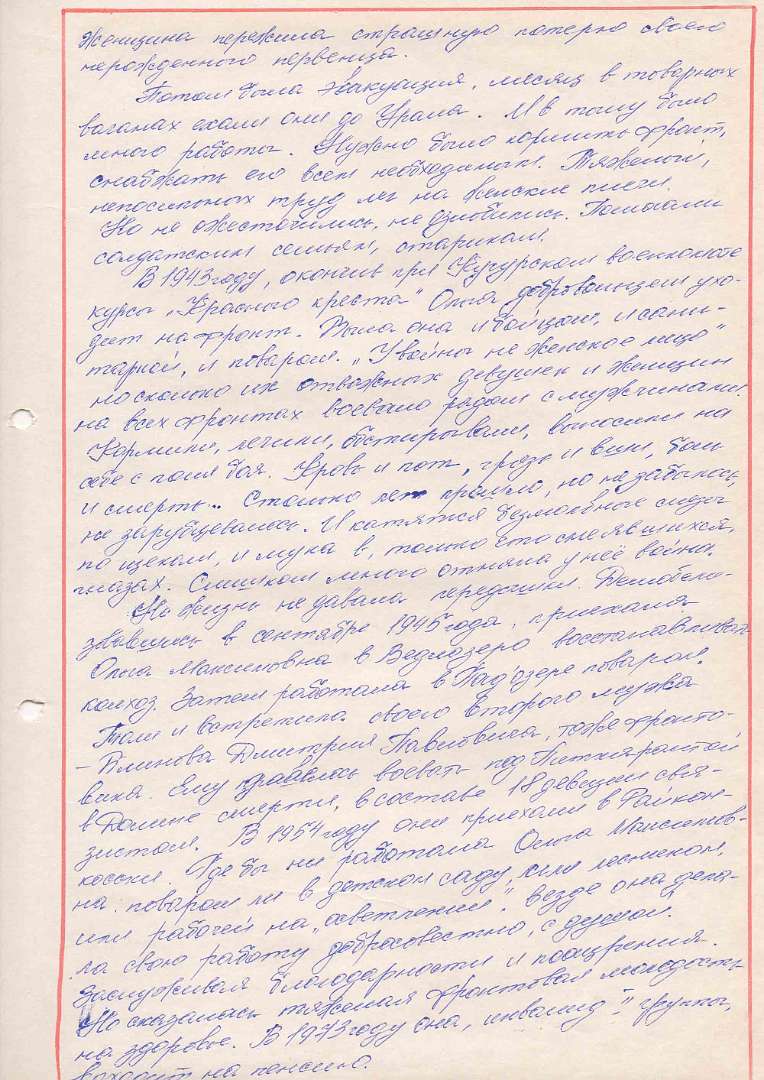 Женщина пережила страшную потерю своего
нерожденного первенца.
Потом была эвакуация, месяц в товарных
вагонах ехали они до Урала. И в тылу было
много работы. Нужно было кормить фронт,
снабжать его всем необходимым. Тяжелый,
непосильный труд лег на женские плечи.
Но не ожесточились, не озлобились. Помогали
солдатским семьям, старикам.
В 1943 году, окончив при Кунгурском военкомате
курсы „Красного креста" Ольга добровольцем ухо-
дит на фронт. Была она и бойцом, и сани-
таркой, и поваром. „У войны не женское лицо"
но сколько их отважных девушек и женщин
на всех фронтах воевало рядом с мужчинами.
Кормили, лечили, обстирывали, выносили на
себе с поля боя. Кровь и пот, грязь и вши, боль
и смерть... Столько лет прошло, но не забылось,
не зарубцевалось. И катятся безмолвные слезы
по щекам, и мука в, только что смеявшихся,
глазах. Слишком много отняла у неё война.
Но жизнь не давала передышки. Демобили-
зовавшись в сентябре 1945 года, приехала
Ольга Максимовна в Ведлозеро восстанавливать
колхоз. Затем работала в Падозере поваром.
Там и встретила своего второго мужа
– Блинова Дмитрия Павловича, тоже фронто-
вика. Ему пришлось воевать под Питкярантой
в Долине смерти, в составе 18 дивизии свя-
зистом. В 1954 году они приехали в Райкон-
коски. Где бы ни работала Ольга Максимов-
на поваром ли в детском саду, или лесником,
или рабочей на „осветлении". Везде она дела-
ла свою работу добросовестно, с душой.
Заслуживая благодарности и поощрения.
Но сказалась тяжелая фронтовая молодость
на здоровье. В 1973 году она, инвалид II группы,
выходит на пенсию.